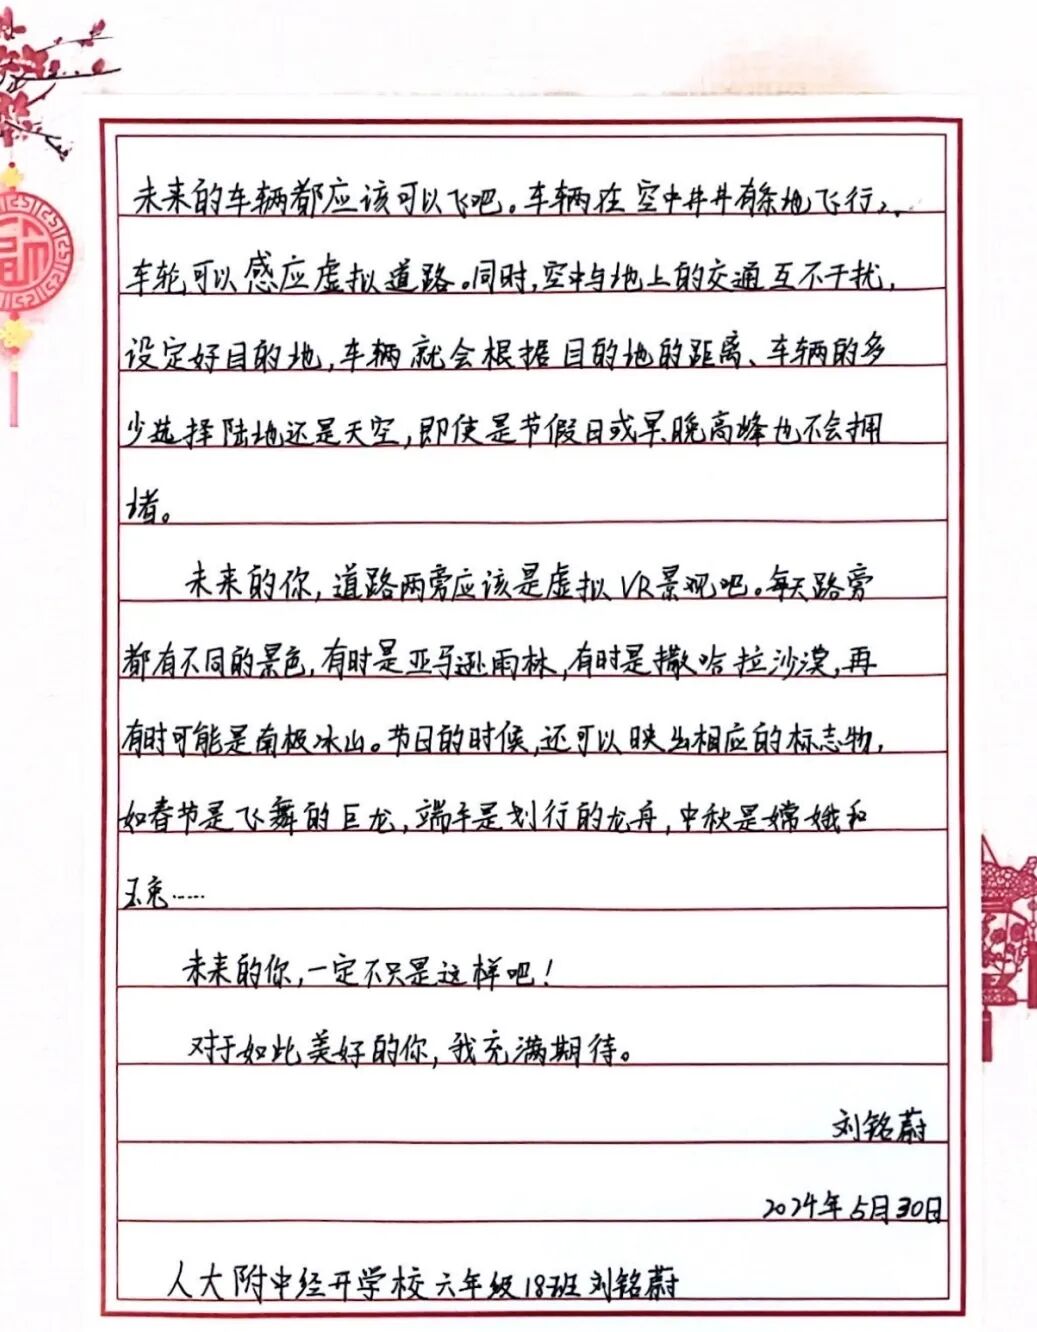 未来的车辆都应该可以飞吧。车辆在空中井井有条地飞行，
车轮可以感应虚拟道路。同时，空中与地上的交通互不干扰，
设定好目的地，车辆就会根据目的地的距离、车辆的多
少选择陆地还是天空，即使是节假日或早晚高峰也不会拥
堵。
未来的你，道路两旁应该是虚拟VR景观吧。每天路旁
都有不同的景色，有时是亚马逊雨林，有时是撒哈拉沙漠，再
有时可能是南极冰山。节日的时候，还可以映出相应的标志物，
如春节是飞舞的巨龙，端午是划行的龙舟，中秋是嫦娥和
玉兔……
未来的你，一定不只是这样吧！
对于如此美好的你，我充满期待。
刘铭蔚
2024年5月30日
人大附中经开学校六年级18班刘铭蔚